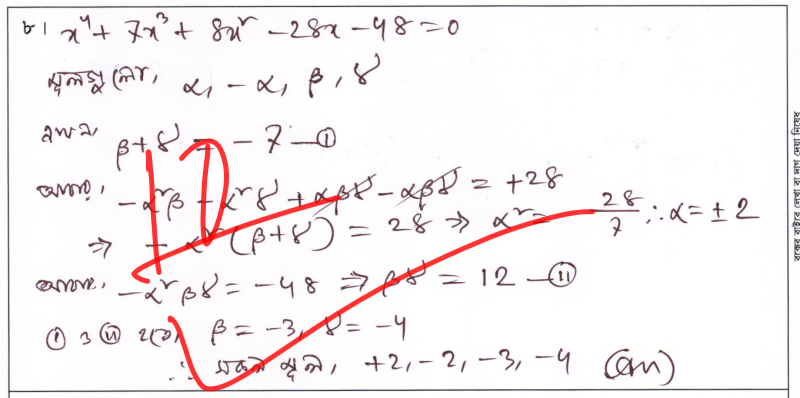 ৮। x⁴ + 7x³ + 8x² - 28x - 48 = 0
মূলগুলো, α, -α, β, γ
এখন, β+γ = -7 —①
আবার, -α²β - α²γ + αβγ - αβγ = +28
⇒ -α²(β+γ) = 28 ⇒ α² = 28/7 ∴ α = ±2
আবার, -α²βγ = -48 ⇒ βγ = 12 —⑪
① ও ⑪ হতে, β = -3, γ = -4
∴ সকল মূল, +2, -2, -3, -4 (Ans)
বক্সের বাইরে লেখা বা দাগ দেয়া নিষেধ